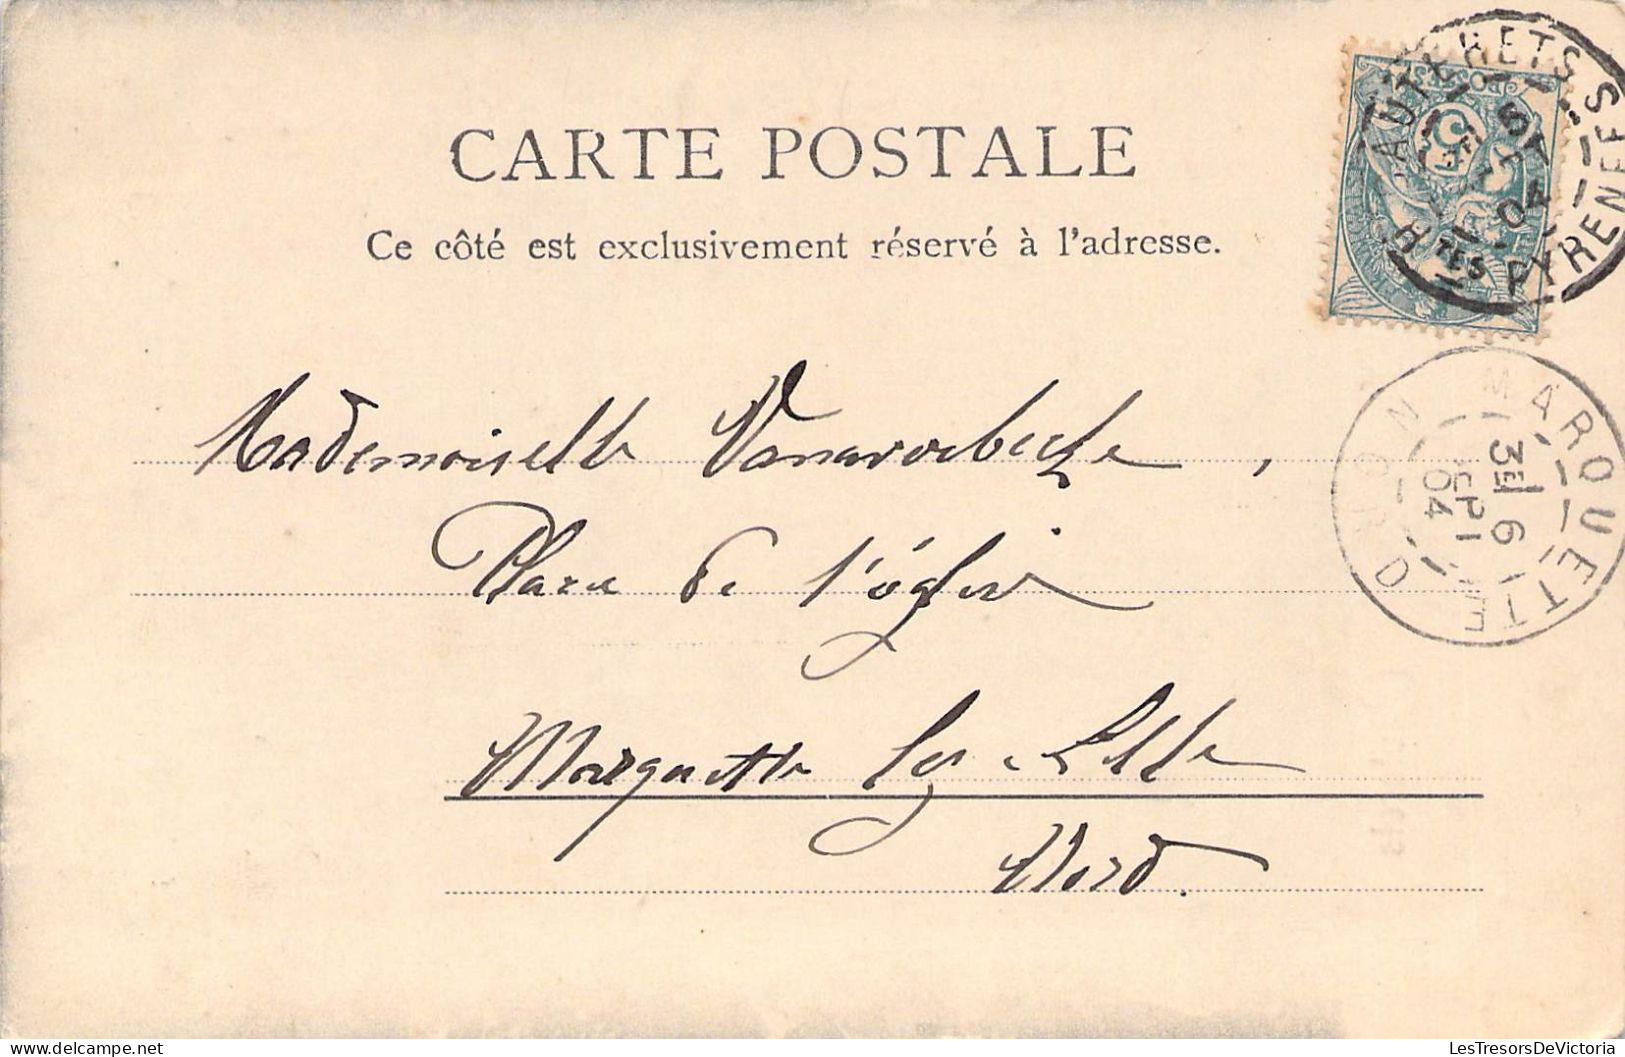 CARTE POSTALE
Ce côté est exclusivement réservé à l'adresse.
Mademoiselle
Place de l'église
Marquette lez Lille
Nord.
CAUTERETS
HTES PYRENEES
04
MARQUETTE
NORD
3E 6
SEPT
04
POSTES
5
LesTresorsDeVictoria